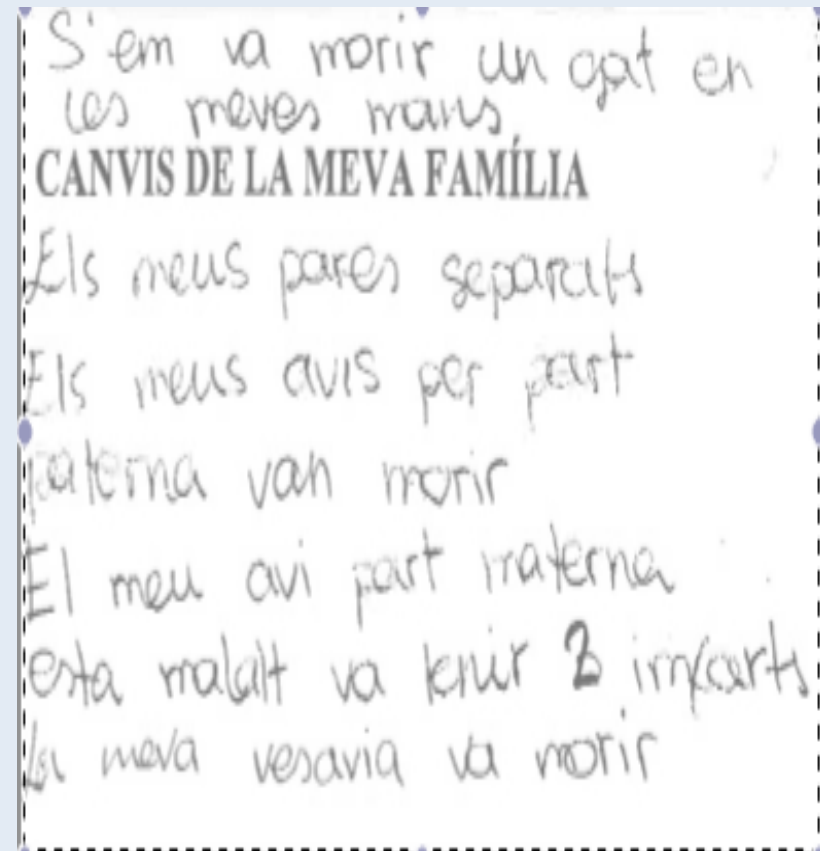 S'em va morir un gat en
les meves mans
CANVIS DE LA MEVA FAMÍLIA
Els meus pares separats
Els meus avis per part
paterna van morir
El meu avi part materna
esta malalt va tenir imfarts
La meva vesavia va morir